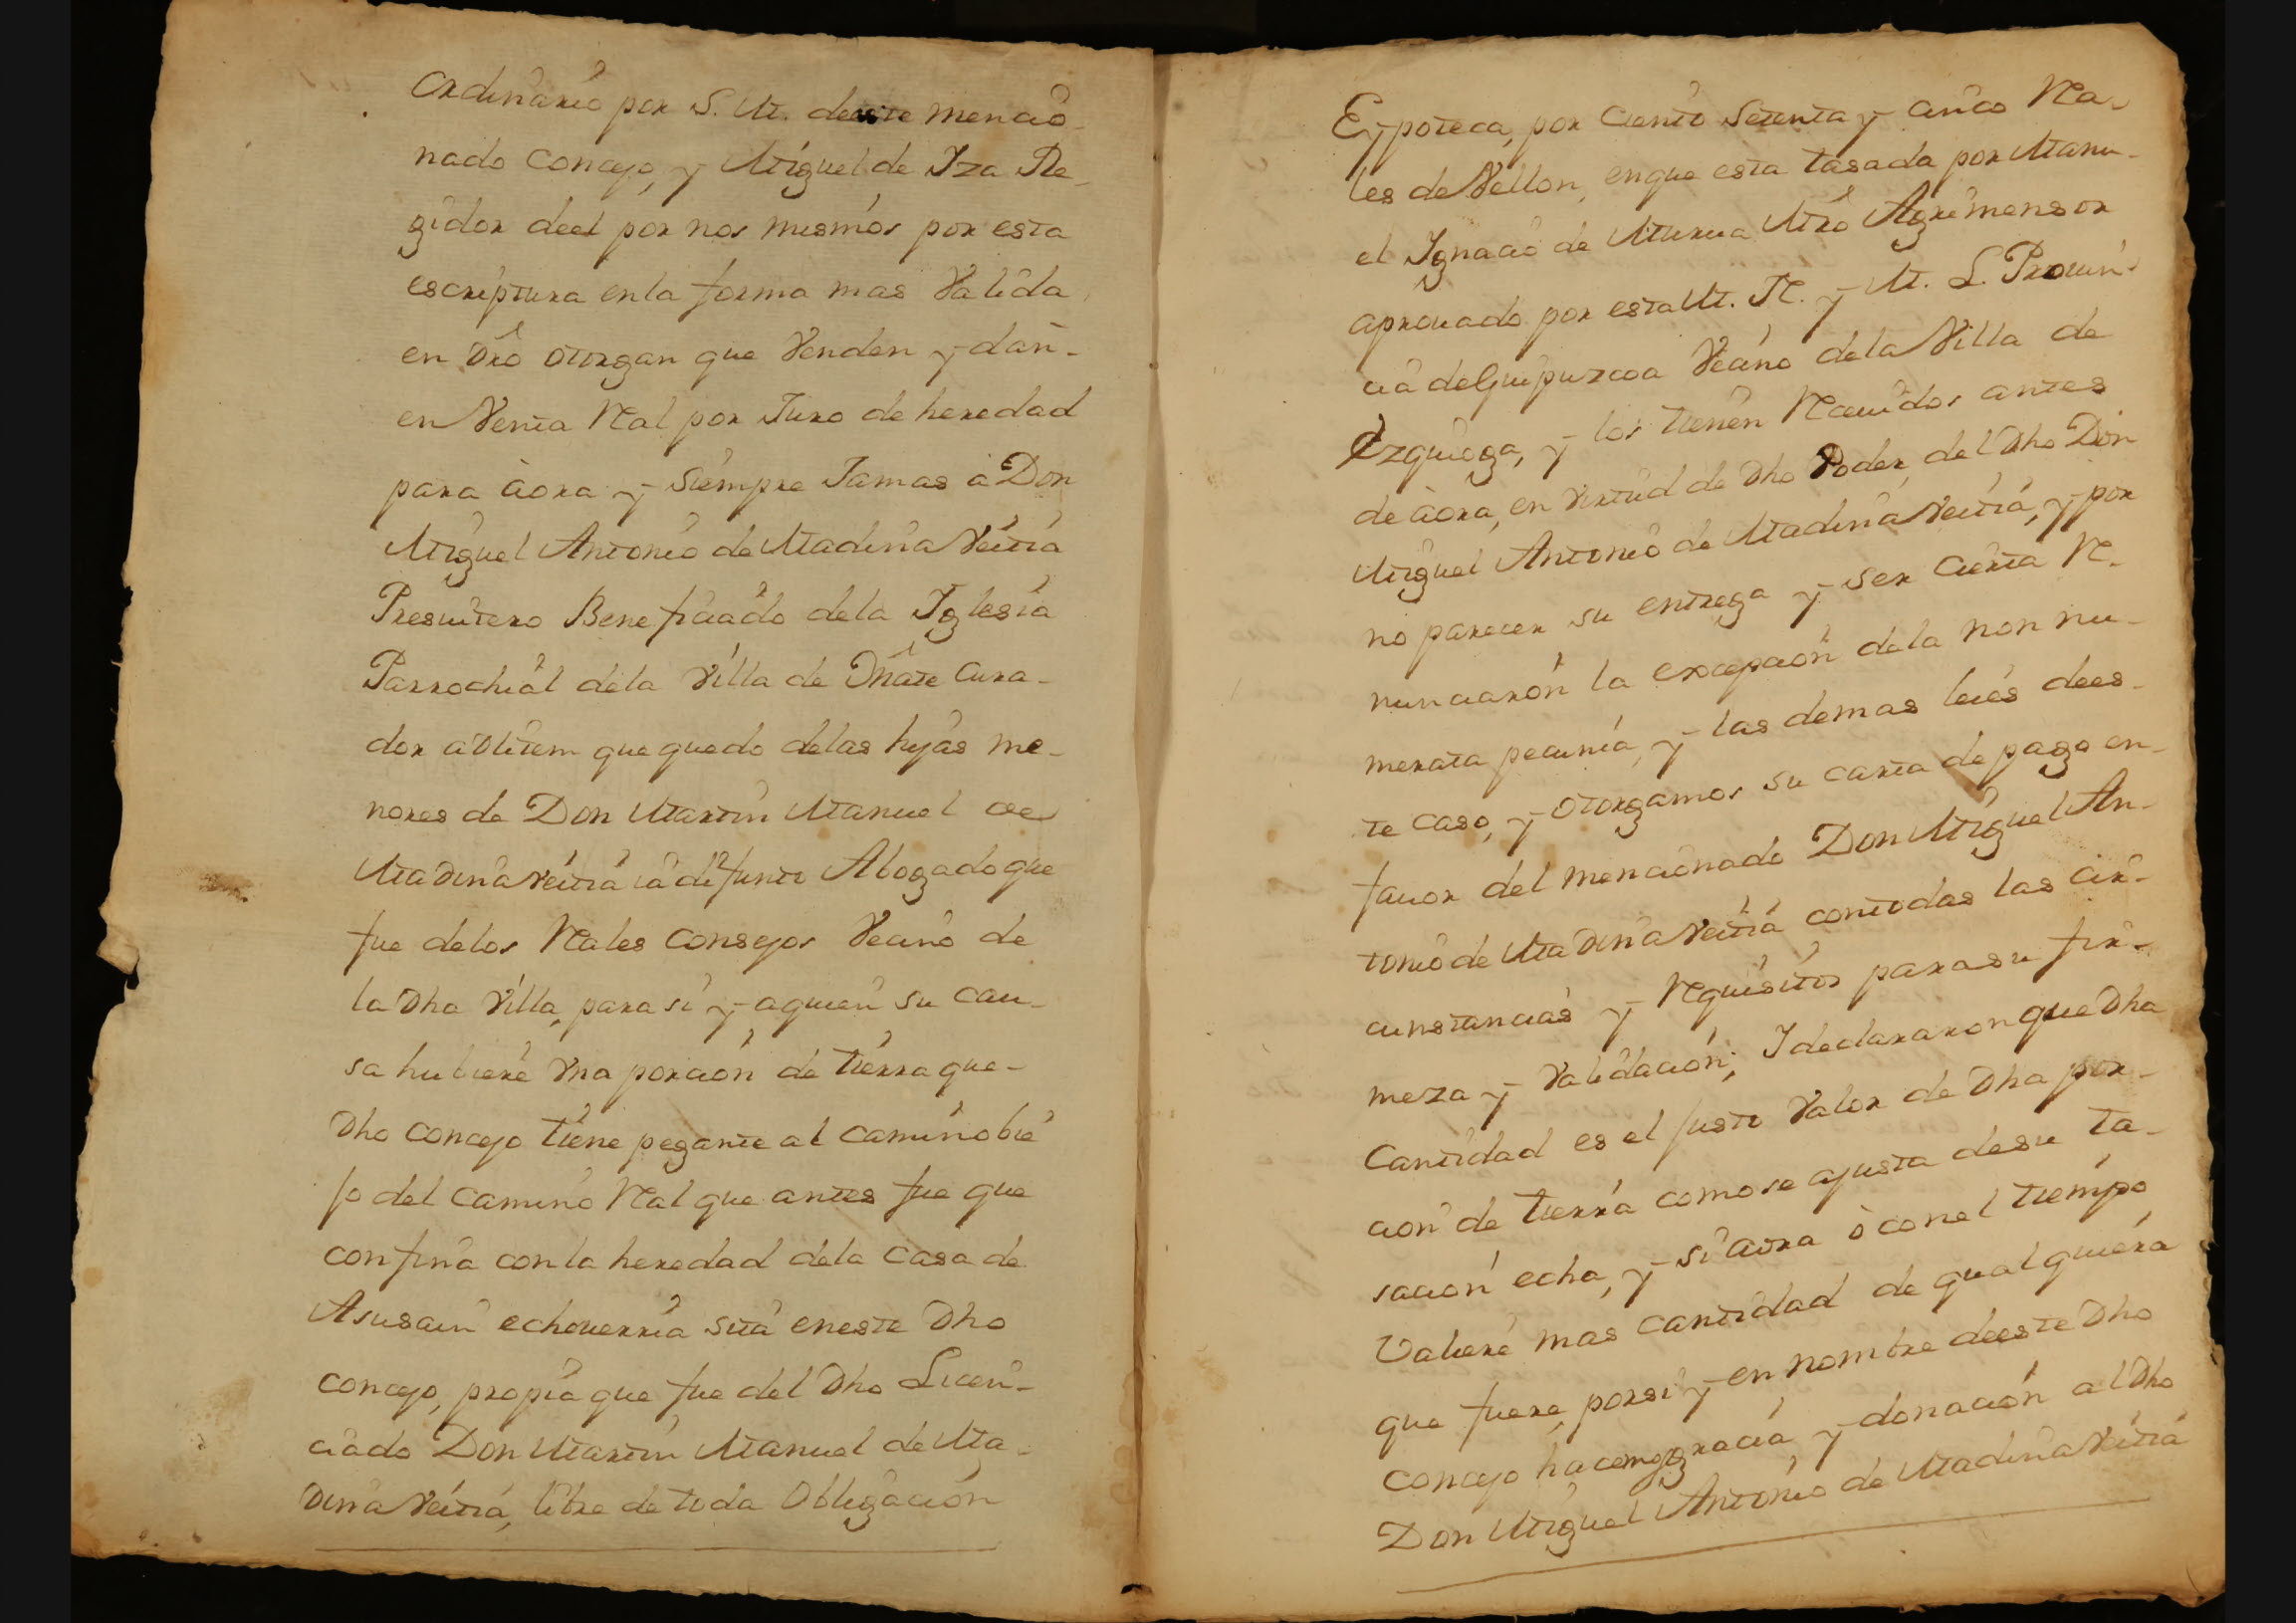 Ordinario por S. M. deeste mencio-
nado Concejo, y Miguel de Iza Re-
gidor deel por nos mismos por esta
escriptura en la forma mas Valida,
en Dro otorgan que Venden y dan-
en Venta Ral por Juro de heredad
para àora y siempre Jamas à Don
Miguel Antonio de Madina Veitia
Presvitero Beneficiado dela Iglesia
Parrochial dela Villa de Oñate Cura-
dor adlitem que quedo delas hijas me-
nores de Don Martin Manuel de
Madina Veitia ia difunto Abogado que
fue delos Rales Consejos Vecino de
la Dha Villa, para si y aquien su cau-
sa hubiere Una porcion de tierra que-
Dho Concejo tiene pegante al camino bie
jo del Camino Ral que antes fue que
confina con la heredad dela Casa de
Asusain echeuerria sita eneste Dho
concejo, propia que fue del Dho Licen-
ciado Don Martin Manuel de Ma-
dina Veitia, libre de toda Obligacion
Eypoteca, por Ciento Setenta y cinco Ra-
les de Vellon, enque esta tasada por Manu-
el Ignacio de Murua Mro Agrimensor
aprouado por esta M. N. y M. L. Prouin-
cia de Guipuzcoa Vecino dela Villa de
Ezquioga, y los tienen Receuidos antes
de àora, en virtud de Dho Poder, del Dho Don
Miguel Antonio de Madina Veitia, y por
no parecer su entrega y ser Cierta Re-
nunciaron la excepcion dela non nu-
merata pecunia, y las demas leies dees-
te caso, y otorgamos su carta de pago en-
fauor del mencionado Don Miguel An-
tonio de Madina Veitia contodas las cir-
cunstancias y Requisitos parasu fir-
meza y Validacion; I declararon que Dha
Cantidad es el Justo Valor de Dha por-
cion de tierra como se ajusta desu ta-
sacion echa, y si aora ò con el tiempo
Valiere mas Cantidad de qualquiera
que fuere, porsi y en nombre deeste Dho
Concejo hacemos gracia y donacion al Dho
Don Miguel Antonio de Madina Veitia